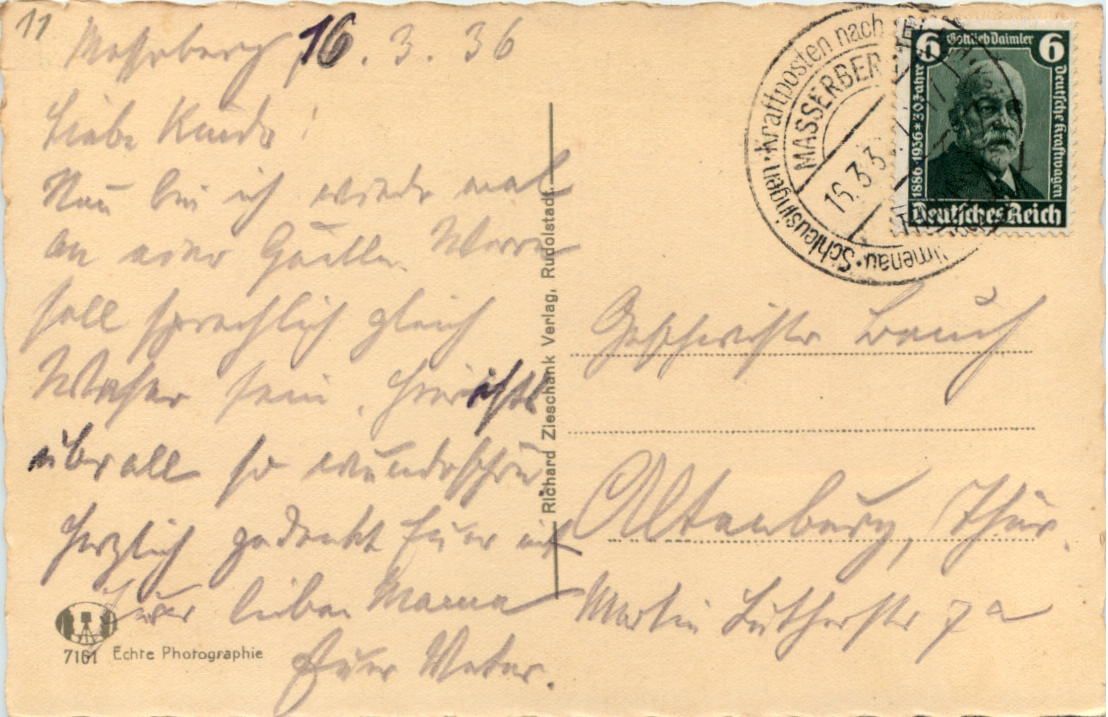 11
Masserberg 16. 3. 36
Liebe Kinder!
Nun bin ich wieder mal
an einer Quelle. Werra
soll sprachlich gleich
Weser sein. Hier ists
überall so wunderschön
Herzlich gedenkt Euer mit
Eurer lieben Mama
Euer Vater.
7161 Echte Photographie
Richard Zieschank Verlag, Rudolstadt.
Kraftposten nach
Schleusingen · Ilmenau
MASSERBER
16.3.3
6 Gottlieb Daimler 6
1886-1936 * 50 Jahre
Deutsche Kraftwagen
Deutsches Reich
Geschwister Bauch
Altenburg, Thür.
Martin Lutherstr 7a